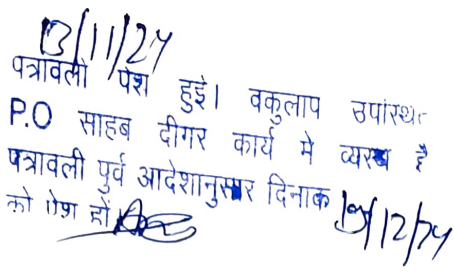 13/11/24
पत्रावली पेश हुई। वकुलाप उपस्थित
P.O साहब दीगर कार्य मे व्यस्त है
पत्रावली पुर्व आदेशानुसार दिनाक
को पेश हों 12/24